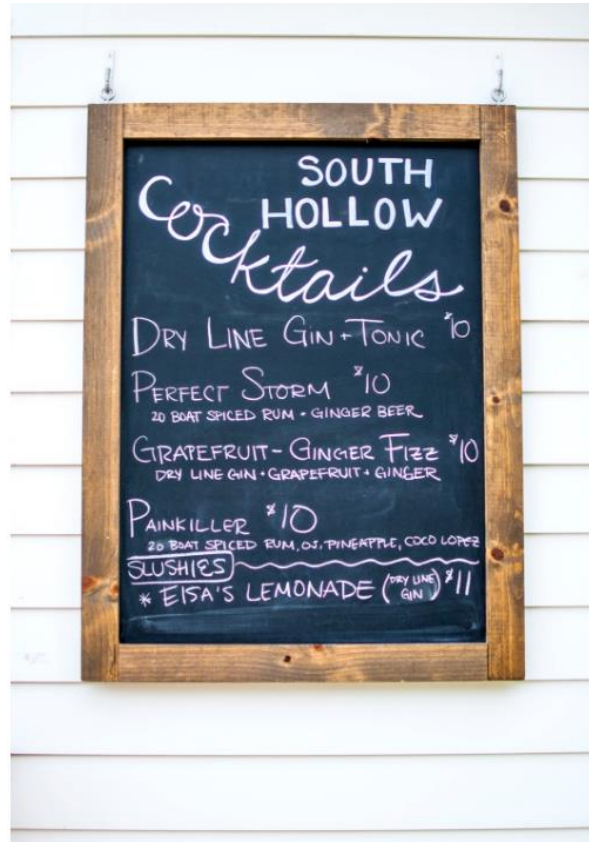 SOUTH
HOLLOW
Cocktails
DRY LINE GIN + TONIC $10
PERFECT STORM $10
20 BOAT SPICED RUM + GINGER BEER
GRAPEFRUIT - GINGER FIZZ $10
DRY LINE GIN + GRAPEFRUIT + GINGER
PAINKILLER $10
20 BOAT SPICED RUM, OJ, PINEAPPLE, COCO LOPEZ
SLUSHIES
* EISA'S LEMONADE (DRY LINE GIN) $11